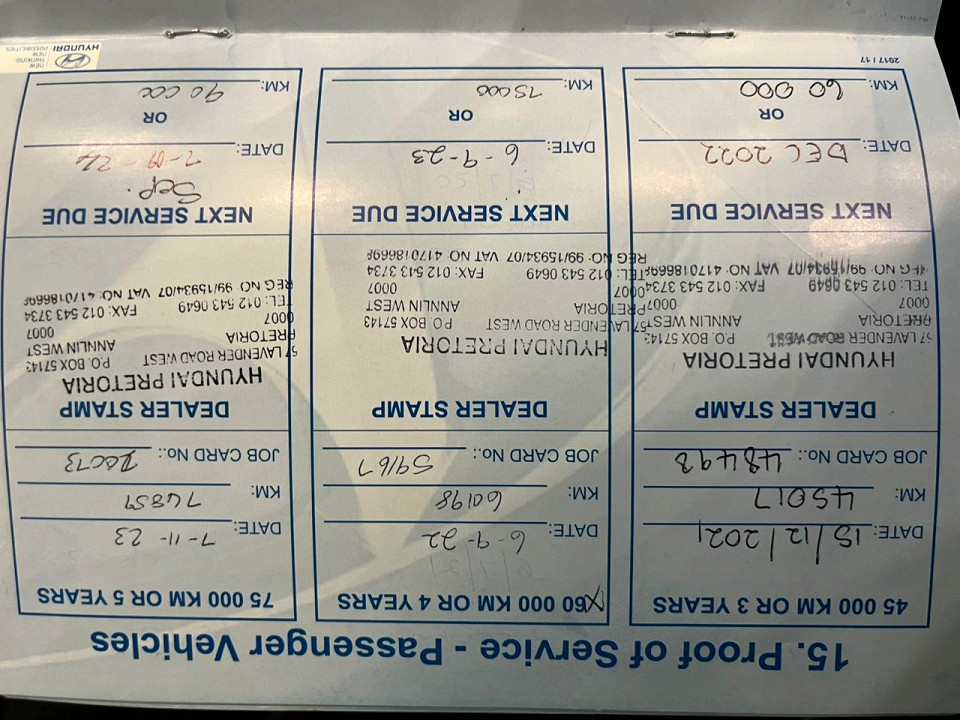 15. Proof of Service - Passenger Vehicles
45 000 KM OR 3 YEARS
DATE: 15/12/2021
KM: 45017
JOB CARD No.: 48498
DEALER STAMP
HYUNDAI PRETORIA
57 LAVENDER ROAD WEST P.O. BOX 57143
PRETORIA ANNLIN WEST
0007 0007
TEL: 012 543 0649 FAX: 012 543 3734
REG NO: 99/15934/07 VAT NO: 4170186698
NEXT SERVICE DUE
DATE: DEC 2022
OR
KM: 60 000
60 000 KM OR 4 YEARS
DATE: 6-9-22
KM: 60198
JOB CARD No.: 59167
DEALER STAMP
HYUNDAI PRETORIA
57 LAVENDER ROAD WEST P.O. BOX 57143
PRETORIA ANNLIN WEST
0007 0007
TEL: 012 543 0649 FAX: 012 543 3734
REG NO: 99/15934/07 VAT NO: 4170186698
NEXT SERVICE DUE
DATE: 6-9-23
OR
KM: 75000
75 000 KM OR 5 YEARS
DATE: 7-11-23
KM: 74859
JOB CARD No.:
DEALER STAMP
HYUNDAI PRETORIA
57 LAVENDER ROAD WEST P.O. BOX 57143
PRETORIA ANNLIN WEST
0007 0007
TEL: 012 543 0649 FAX: 012 543 3734
REG NO: 99/15934/07 VAT NO: 4170186698
NEXT SERVICE DUE
Sep.
DATE: 7-09-24
OR
KM: 90 000
2017 / 17
HYUNDAI
NEW THINKING.
NEW POSSIBILITIES.